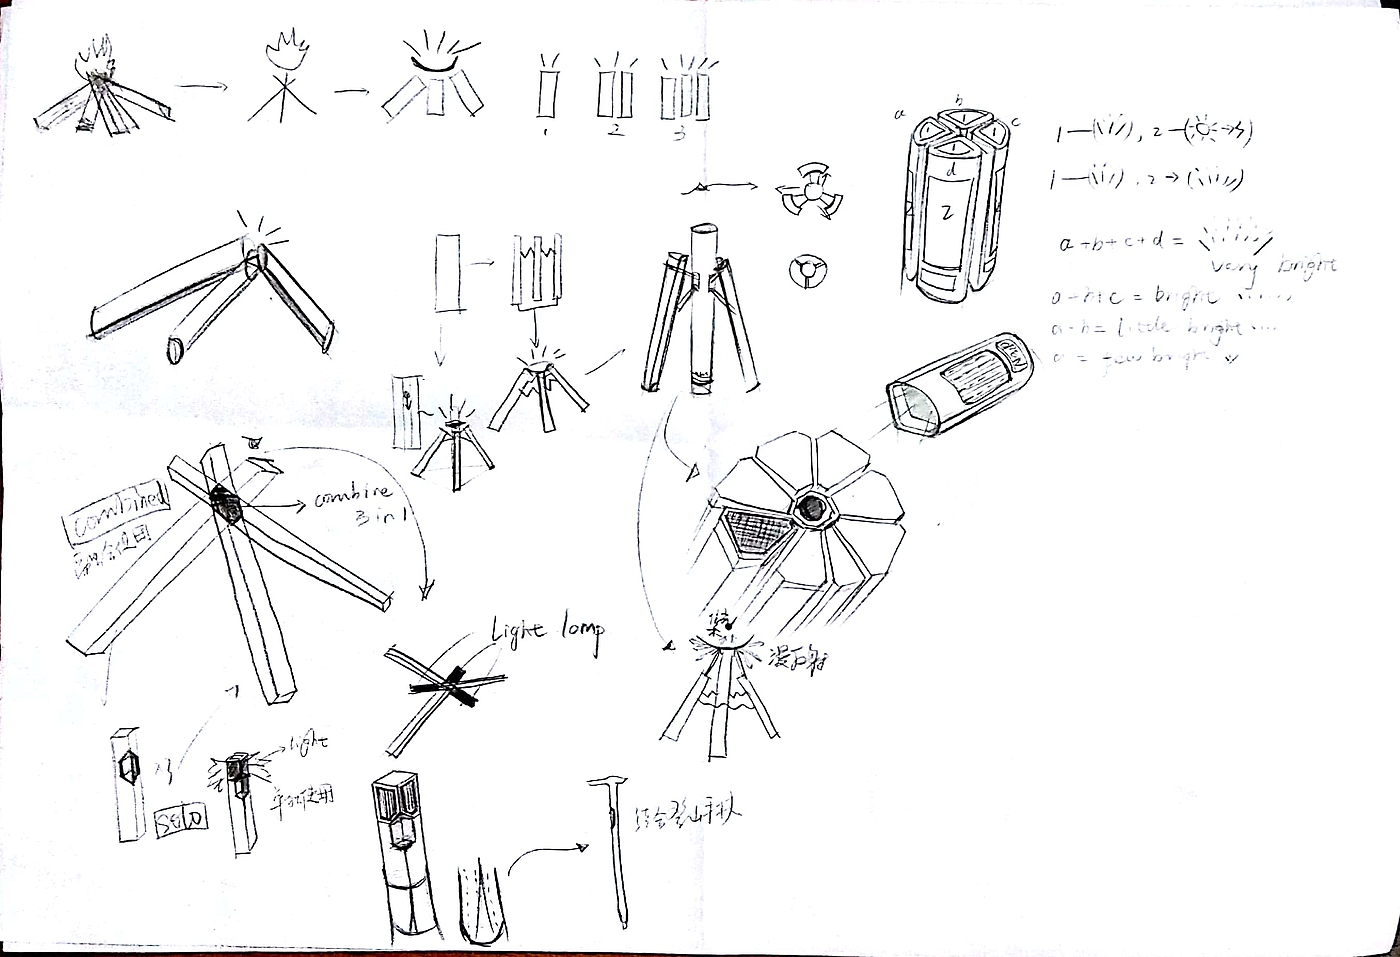 1 2 3
a b c
d
2
1—( ), 2—( )
1—( ), 2→( )
a+b+c+d =
very bright
a+b+c = bright
a+b = little bright
a = few bright
combined
融合使用
combine
3 in 1
Light lamp
漫反射
light
solo
单独使用
结合登山手杖